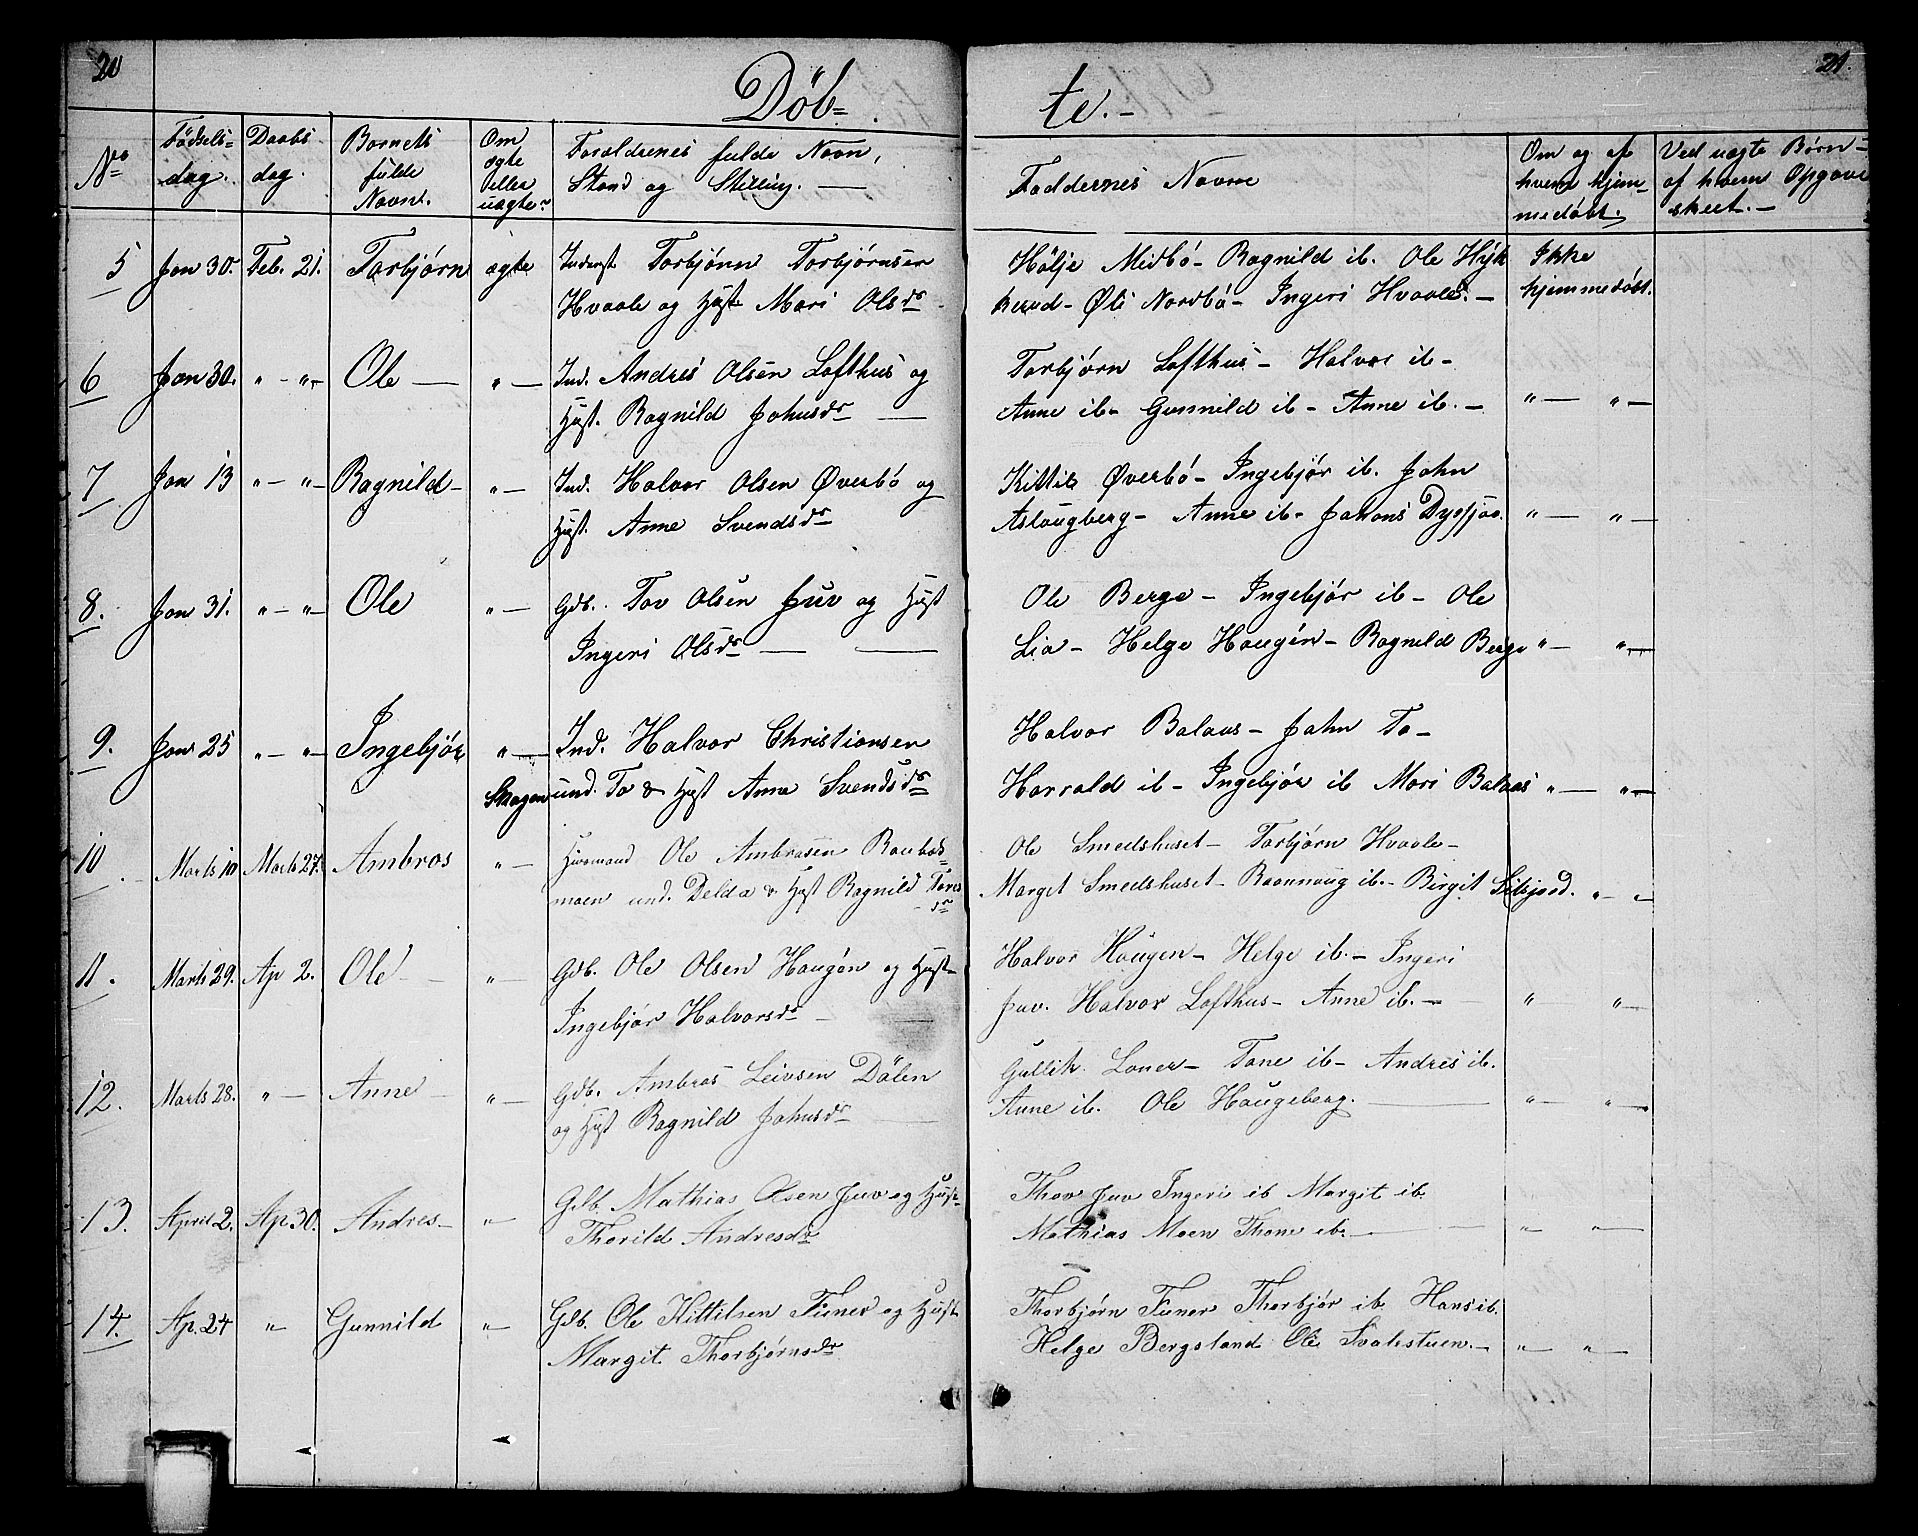 20
21.
Döb= te.-
No
Födsels= dag.
Daabs dag.
Barnets fulde Navn.
Om ægte eller uægte.
Forældrenes fulde Navn, Stand og Stilling. —
Faddernes Navne
Om og af hvem hjem- medöbt.
Ved uægte Börn- af hvem Opgave skeet.-
5 Jan 30. Feb. 21. Torbjørn ægte Inderst Torbjönn Torbjørnsen
Hvaale og Hust Mari Olsdr
Hölje Midbö- Ragnild ib. Ole Hyk
kerud- Øli Nordbö- Ingeri Hvaale.-
Ikke hjemmedöbt.
6 Jan 30. " - " - Ole — " — Ind. Andres Olsen Lofthus og
Hust. Ragnild Johnsdr —
Torbjørn Lofthus- Halvor ib-
Anne ib- Gunnild ib- Anne ib.- " — " —
7 Jan 13 " - " - Ragnild- " — Ind. Halvor Olsen Øverbö og
Hust. Anne Svendsdr
Kittil Øverbö- Ingebjör ib. John
Aslaugberg- Anne ib- Dysjas. " — " —
8. Jan 31. " - " - Ole " — Gdb. Tov Olsen Juv og Hust
Ingeri Olsdr — —
Ole Berge- Ingebjör ib- Ole
Lia- Helge Haugén- Ragnild Berge " — " —
9. Jan 25 " - " - Ingebjör " — Ind. Halvor Christiansen
Skogen und. To & Hust Anne Svendsdr
Halvor Balaas- John To-
Harrald ib- Ingebjör ib Mari Balaas " — " —
10. Marts 10 Marts 27. Ambros " — Huusmand Ole Ambrosen
moen und. Delda & Hust Ragnild Tores-
dr
Ole Smedshuset- Torbjørn Hvaale-
Marget Smedshuset- ib.- Birgit " - " -
11. Marts 29. Ap 2. Ole - " — Gdb. Ole Olsen Haugón og Hust-
Ingebjör Halvorsdr -
Halvor Haugen- Helge ib.- Ingeri
Juv. Halvor Lofthus- Anne ib.- " " -
12. Marts 28. " — Anne - " — Gdb. Ambros Leivsen Dölen
og Hust Ragnild Johnsdr —
Gullik Loner- Tone ib- Andres ib.
Anne ib. Ole Haugeberg. — " — " —
13. April 2. Ap 30. Andres- " — Gdb. Mathias Olsen Juv og Hust-
Thorild Andresdr
Thov Juv Ingeri ib Margit ib.
Mathias Moen Thone ib. — " — " —
14. Ap. 24 " Gunnild " — Gdb. Ole Kittilsen Tuner og Hust
Margit Thorbjørnsdr
Thorbjørn Tuner Thorbjør ib. Hans ib.
Helge Bergsland Ole Svalestuen.- " — " —